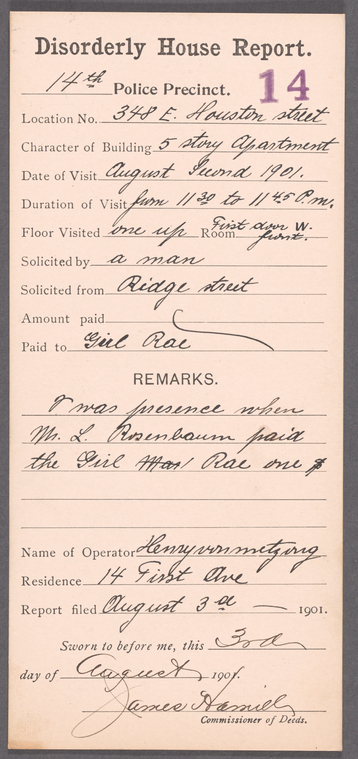 Disorderly House Report.
14th Police Precinct. 14
Location No. 348 E. Houston street
Character of Building 5 story Apartment
Date of Visit August Second 1901.
Duration of Visit from 11 30 to 11 45 P.m.
Floor Visited one up Room First door W. front.
Solicited by a man
Solicited from Ridge street
Amount paid
Paid to Girl Rae
REMARKS.
I was presence when
Mr. L. Rosenbaum paid
the Girl Rae one $
Name of Operator Henry von
Residence 14 First Ave
Report filed August 3d — 1901.
Sworn to before me, this 3rd
day of August, 1901.
James Hamill
Commissioner of Deeds.